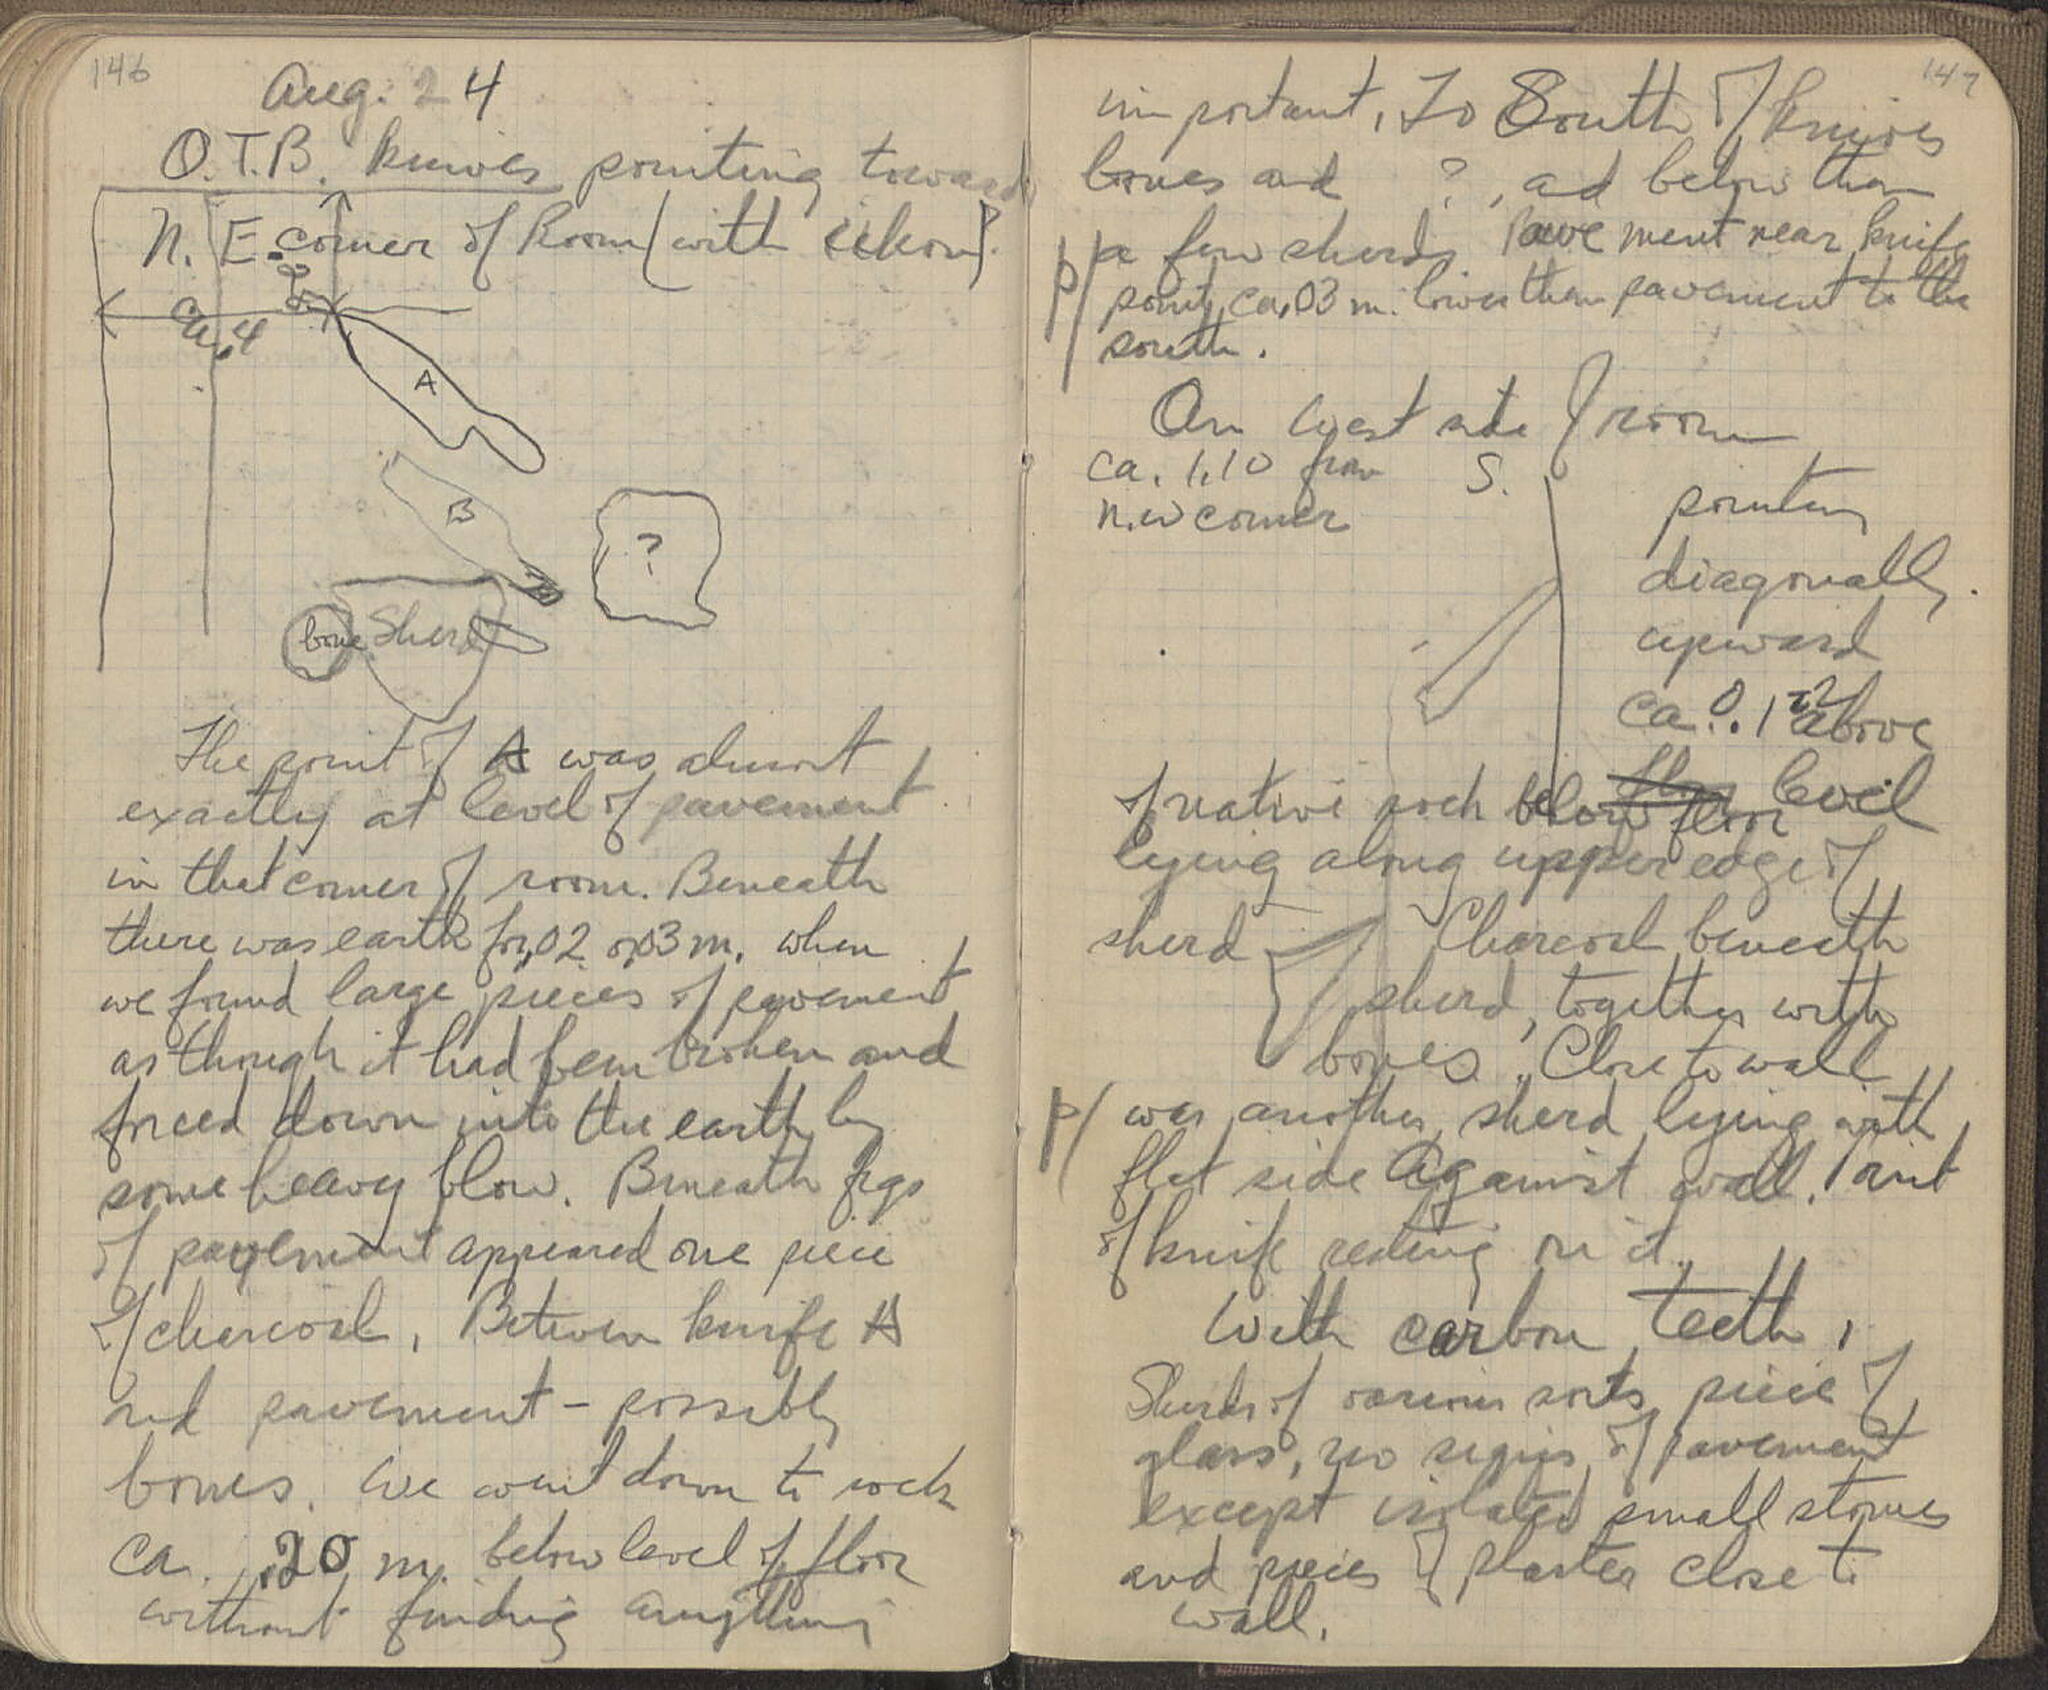 146
Aug. 24
O.T.B. knives pointing toward
N. E. corner of Room (with
ca. .4
A
B
?
bone Sherd
The point of A was almost
exactly at level of pavement
in that corner of room. Beneath
there was earth for .02 or .03 m. when
we found large pieces of pavement
as though it had been broken and
forced down into the earth by
some heavy blow. Beneath frgs
of pavement appeared one piece
of charcoal. Between knife A
and pavement – possibly
bones. We went down to rock
ca. .20 m. below level of floor
without finding anything
147
important. To South of knives
bones and ?, ad below them
p/ a few sherds. Pavement near knife
p/ point, ca .03 m. lower than pavement to the
south.
On West side of room
ca. 1.10 from S.
N.W corner
pointing
diagonally
upward
ca. 0.12 above
of native rock below floor level
lying along upper edge of
sherd Charcoal beneath
sherd, together with
bones. Close to wall
p/ was another sherd lying with
flat side against wall. Point
of knife resting on it.
With carbon, teeth,
Sherds of various sorts, piece of
glass, no signs of pavement
except isolated small stones
and pieces of plaster close to
wall.